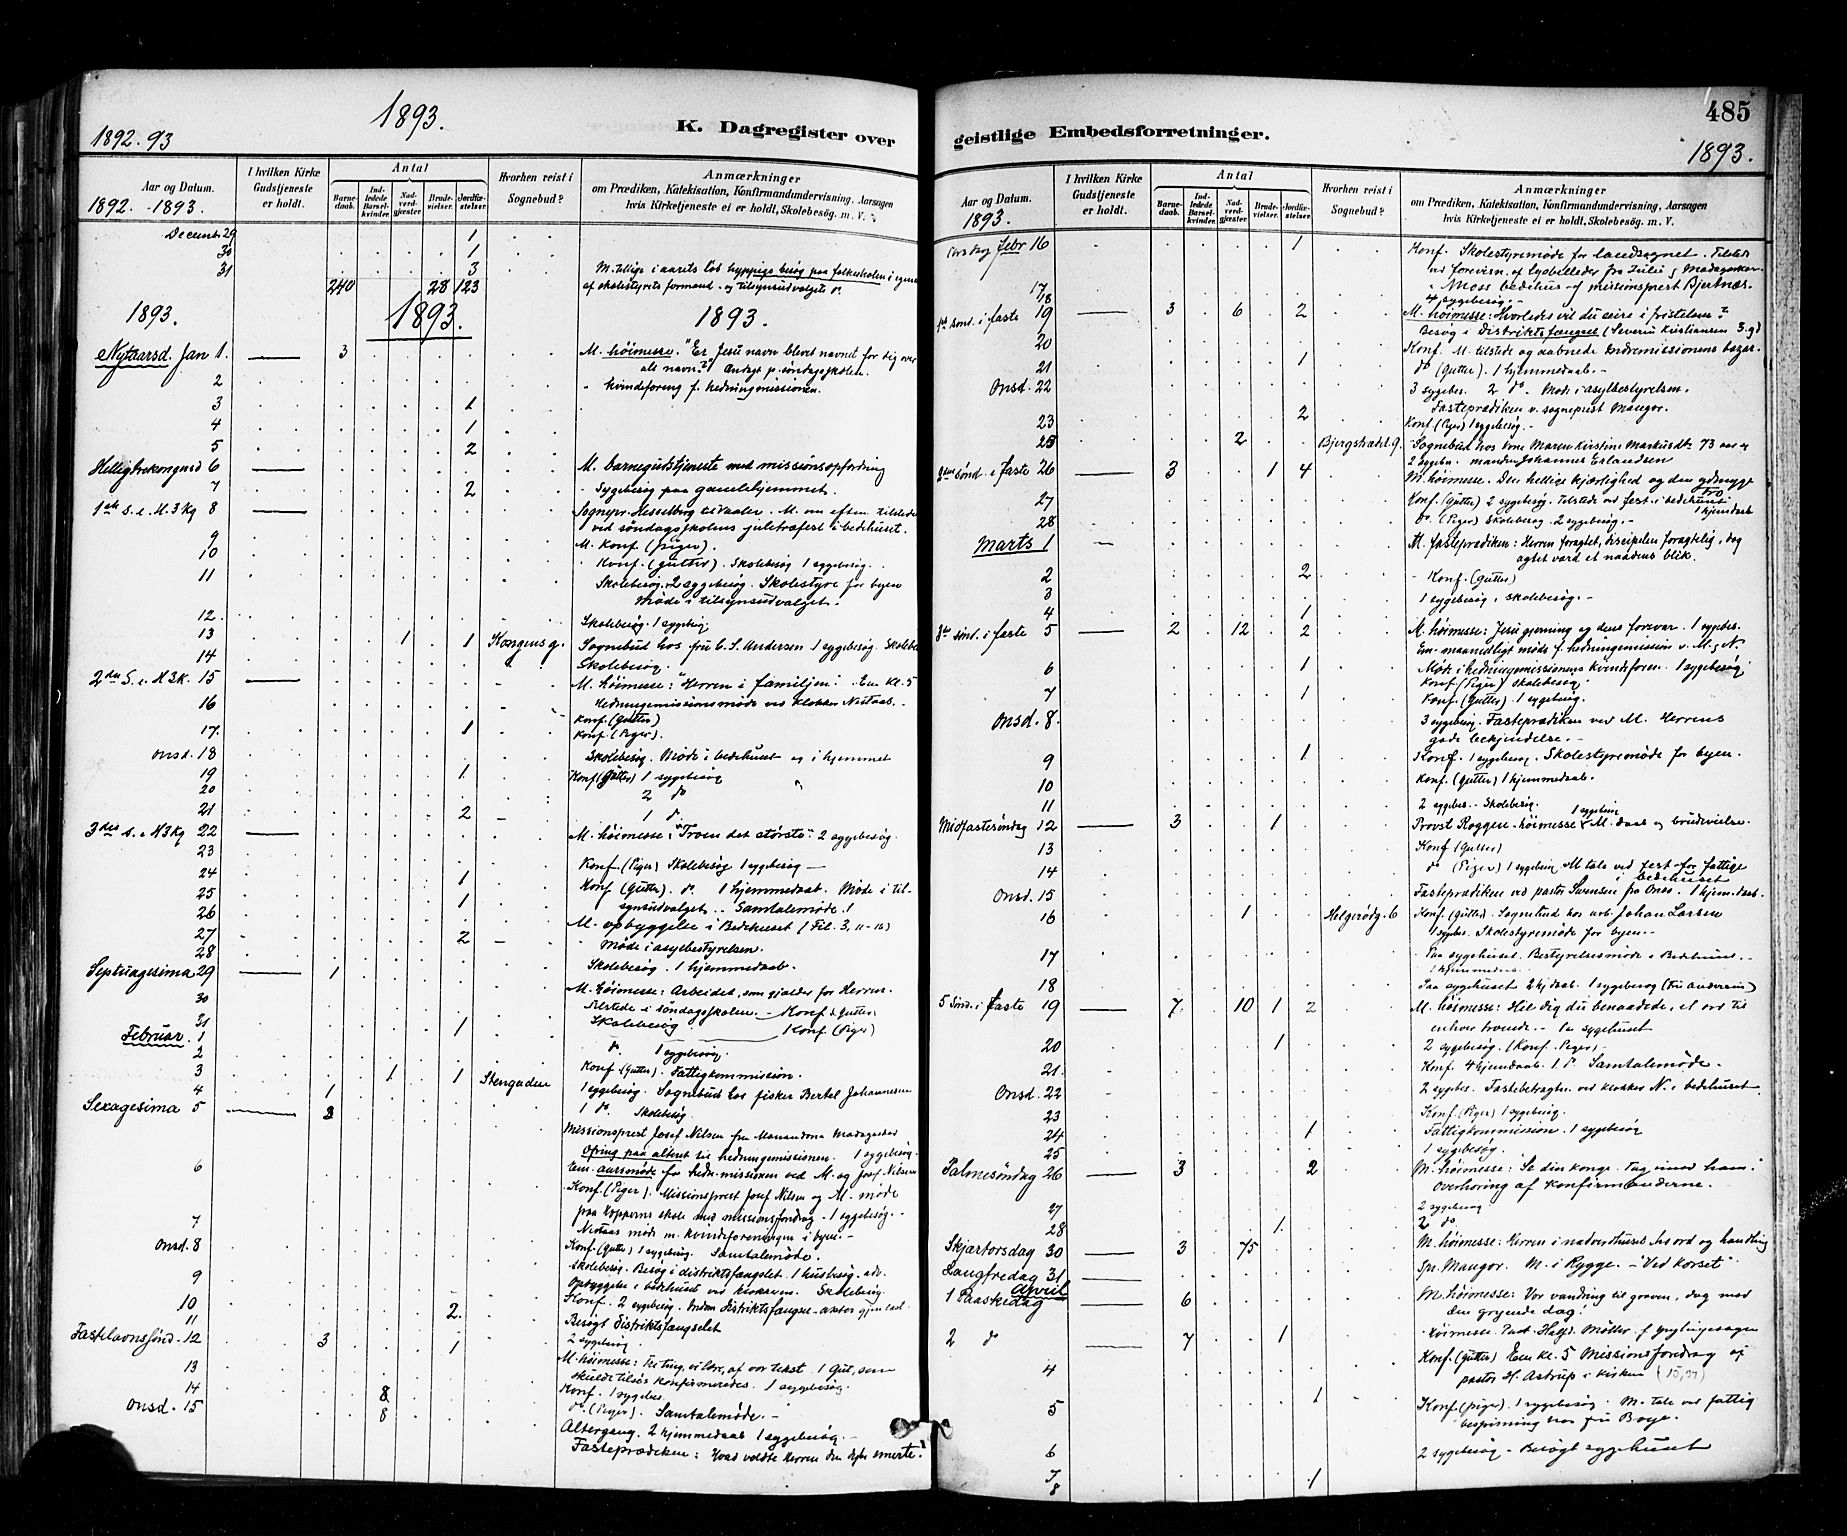 1893.
1892.93
K. Dagregister over
Aar og Datum.
1892. -1893.
I hvilken Kirke Gudstjeneste er holdt.
Antal
Barnedaab.
Indledede Barselkvinder.
Nadverdgjester
Brudevielser.
Jordfæstelser.
Hvorhen reist i Sognebud?
Anmærkninger
om Prædiken, Katekisation, Konfirmandundervisning, Aarsagen
hvis Kirketjeneste ei er holdt, Skolebesög. m. V.
December 29 1
30 1
31 3 M. tillige i aarets löb hyppige besög paa folkeskolen i egenskab
240 28 123 af skolestyrets formand og tilsynsudvalgets do
1893. 1893. 1893.
Nytaarsd. Jan 1. 3 M. höimesse. "Er Jesu navn blevet navnet for dig over
alle navn?"
2 Kvindeforening f. hedningmissionen.
3 1
4 1
5 2
Helligtrekongersd 6 M. barnegudstjeneste med missionsopfordring
7 2 Sygebesög paa gamlehjemmet.
1ste S. e. H. 3 Kg 8 Sognepr. Hesselberg
ved söndagsskolens juletræfest i bedehuset.
9 M. Konf. (piger).
10 Konf. (gutter). Skolebesög 1 sygebesög.
11 Skolebesög. 2 sygebesög. Skolestyre for byen
Möde i tilsynsudvalget.
12. Skolebesög. 1 sygebesög
13 1 1 Kongensg. Sognebud hos fru C. S. Andersen 1 sygebesög. Skolebes
14 Skolebesög.
2den S. e. H3K. 15 M. höimesse: "Herren i familjen". Em kl. 5
Hedningemissionsmöde ved klokker Nestaas.
16 Konf. (Gutter)
17. 1 Konf. (Piger).
Onsd. 18 Skolebesög. Möde i bedehuset og i hjemmet
19 1 Konf (Gutter) 1 sygebesög
20 2 do
21 2 1 do
3die s. e. H3Kg 22 M. höimesse: "Troen det störste". 2 sygebesög.
23
24 1 Konf. (Piger) Skolebesög 1 sygebesög
25 1 Konf (Gutter) do. 1 hjemmedaab. Möde i tilsynsudvalget. Samtalemöde.
26 M. opbyggelse i Bedehuset (Fil. 3, 11-16)
27 2 Möde i asylbestyrelsen.
28 Skolebesög. 1 hjemmedaab.
Septuagesima 29 1 M. höimesse: Arbeidet, som gjælder for Herren.
30 Tilstede i söndagsskolen. Konf. Gutter
31 1 Skolebesög. Konf. (Piger)
Februar. 1 do. 1 sygebesög.
2 Konf. (Gutter). Fattigkommission.
3 1 1 Stengaden 1 sygebesög. Sognebud hos fisker Bertel Johannesen
4 1 1 do. Skolebesög.
Sexagesima 5 3 Missionsprest Josef Nilsen fra Manandona Madagaskar
Ofring paa alteret til hedningemissionen. 1 sygebesög.
Em aarsmöde for hedn. missionen ved M. og Josef Nilsen
6 Konf. (Piger). Missionsprest Josef Nilsen og M. möde
paa Kopperns skole med missionsforedrag. 1 sygebesög.
7 Nestaas möde m. kvindeforeningen i byen.
Onsd. 8 Konf. (Gutter) 1 sygebesög. Samtalemöde.
Skolebesög. Besög i distriktsfængslet. 1 husbesög.
9 Opbyggelse i bedehuset ved Skolebesög.
10 2. Konf. 2 sygebesög.
11 Besögt distriktsfængslet
Fastelavnssönd. 12 3 1 2 sygebesög
13 M. höimesse: Tre ting, vi lære, af vor tekst. 1 Gut, som
skulde tilses konfirmeredes. 1 sygebesög.
14 8 Konf. 1 sygebes.
Onsd. 15 8 do. (Piger). Samtalemöde.
Altergang. 2 hjemmedaab 1 sygebesög.
Fasteprædiken: Hvad voldte Herren den dybe smerte?
geistlige Embedsforretninger.
485
1893.
Aar og Datum.
1893.
I hvilken Kirke Gudstjeneste er holdt.
Antal
Barnedaab.
Indledede Barselkvinder.
Nadverdgjester
Brudevielser.
Jordfæstelser.
Hvorhen reist i Sognebud?
Anmærkninger
om Prædiken, Katekisation, Konfirmandundervisning, Aarsagen
hvis Kirketjeneste ei er holdt, Skolebesög. m. V.
Torsdag febr 16 1 Konf. Skolestyremöde for landsognet. Tilstede
ved forevisn. af lysbilleder fra Zulu og Madagaskar
17 i Moss bedehus af missionsprest Bjertnæs.
18 4 sygebesög.
1ste sönd. i faste 19 3 6 2 M. höimesse: Hvorledes vil du seire i fristelsen?
Besög i Distriktsfængslet (Severin Kristiansen
20 Konf. M. tilstede og aabnede Indremissionens bazar.
21 1 do (Gutter). 1 hjemmedaab.
Onsd. 22 3 sygebes. 2 do. Möde i asylbestyrelsen.
Fasteprædiken v. sogneprest Maugor.
23 2 Konf. (Piger) 1 sygebesög.
25 2 Bjergstrædet 9. Sognebud hos kone Maren Kristine Markusdtr 73 aar
2 sygebn. manden Johannes Erlandsen
2den sönd. i faste 26 3 1 4 M. höimesse. Den hellige kjærlighed og den ydmyge tro
27 Konf. (Gutter) 2 sygebesög. Tilstede ved fest i bedehuset
28 do. (Piger) Skolebesög. 2 sygebesög. 1 hjemdaab
Marts 1 M. fasteprædiken: Herren foragtet, disciplen foragtelig, dog
agtet værd et naadens blik.
2 2 Konf. (Gutter)
3 1 sygebesög, skolebesög.
4 1
3die sönd. i faste 5 2 12 2 M. höimesse: Jesu gjerning og dens forsvar. 1 sygebes.
Em. maanedligt möde f. hedningemission v. M. og N.
6 1 Möde i hedningmissionens kvindeforen. 1 sygebesög
7 1 Konf. (Piger) Skolebesög
Konf. (Gutter). 1 sygebesög.
Onsd. 8. 3 sygebesög. Fasteprædiken ved M. Herrens
gode bekjendelse.
9 1 Konf. 1 sygebesög. Skolestyremöde for byen.
10 Konf. (Gutter) 1 hjemmedaab.
11 2 sygebes. Skolebesög. 1 sygebesög
Midfastesöndag 12 3 1 Provst Roggen höimesse M. daab og brudevielse.
13 Konf (Gutter)
14 do (Piger) 1 sygebesög M tale ved fest for fattige
i bedehuset
Onsd. 15 Fasteprædiken ved pastor Svensen fra Onsö. 1 hjemdaab.
16 1 Helgerödg. 6 Konf. (Gutter). Sognebud hos arb. Johan Larsen
1 sygebes. Skolestyremöde for byen.
17 Paa sygehuset. Bestyrelsesmöde i Bedehuset.
18 Paa sygehuset 2 hj.daab. 1 sygebesög (Fru Andersen)
5 Sönd. i faste 19 7 10 1 2 M. höimesse: Hil dig du benaadede, et ord til
enhver troende. Paa sygehuset
20 1 2 sygebesög. (Konf. Piger)
21. Konf. 4 hjemdaab. 1 do. Samtalemöde.
Onsd. 22 2 sygebes. Fastebetragtn. ved klokker N. i bedehuset
23 Konf. (Piger) 1 sygebesög.
24 1 Fattigkommission. 1 sygebesög
25 1 sygebesög.
Palmesöndag 26 3 2 M. höimesse: "Se din konge. Tag imod ham."
Overhöring af konfirmanderne.
27 2 sygebesög
28 1. 2 do
Skjærtorsdag 30 3 75 M. höimesse: Herren i nadverdhuset hs ord og handling
Langfredag 31 Spr. Maugor. M. i Rygge. "Ved korset"
April
1 Paaskedag 6 M. höimesse: Vor vandring til graven, dog mod
den gryende dag!
2 do 7 1 Höimesse Past. Halfd. Möller f. ynglingesagen
Konf. (Gutter) Em kl. 5 Missionsforedrag af
4 pastor H. Astrup i kirken
5 1 Konf. (piger). 1 sygebesög. M. tale ved fattig
bespisning hos fru Boye.
6 2 sygebesög. Besögt sygehuset
7 1
8